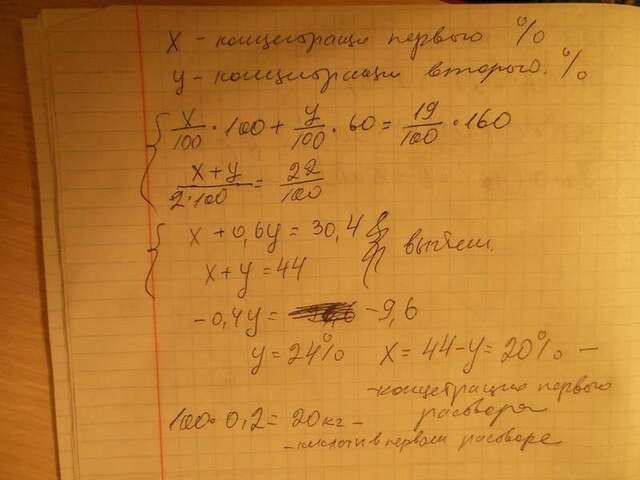 x - концетраци первого %
y - концетрации второго. %
x/100 · 100 + y/100 · 60 = 19/100 · 160
x + y / 2·100 = 22/100
x + 0,6y = 30,4
x + y = 44 вычтем.
-0,4y = -9,6
y = 24% x = 44 - y = 20% -
- концетрацию первого
расвора
100 · 0,2 = 20 кг -
- кислоты в первом расворе